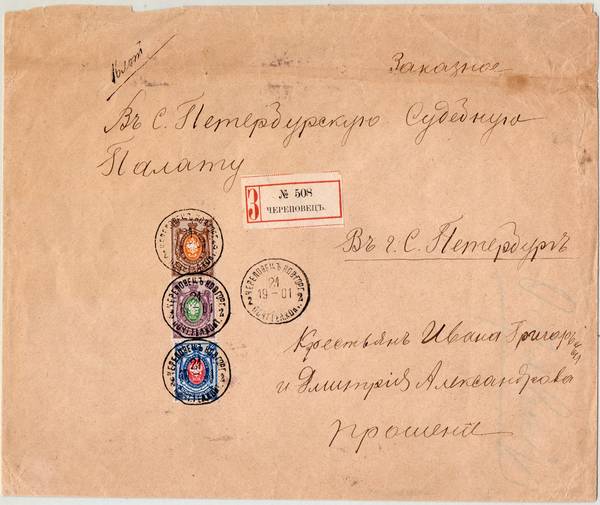 Заказное
Въ С. Петербурскую Судебную
Палату
З
№ 508
ЧЕРЕПОВЕЦЪ.
Въ г. С. Петербургъ
ЧЕРЕПОВЕЦЪ НОВГОР.
21
19-01
ПОЧТ. ТЕЛ. КОН.
Крестьян Ивана
и Дмитрія Александрова
прошені